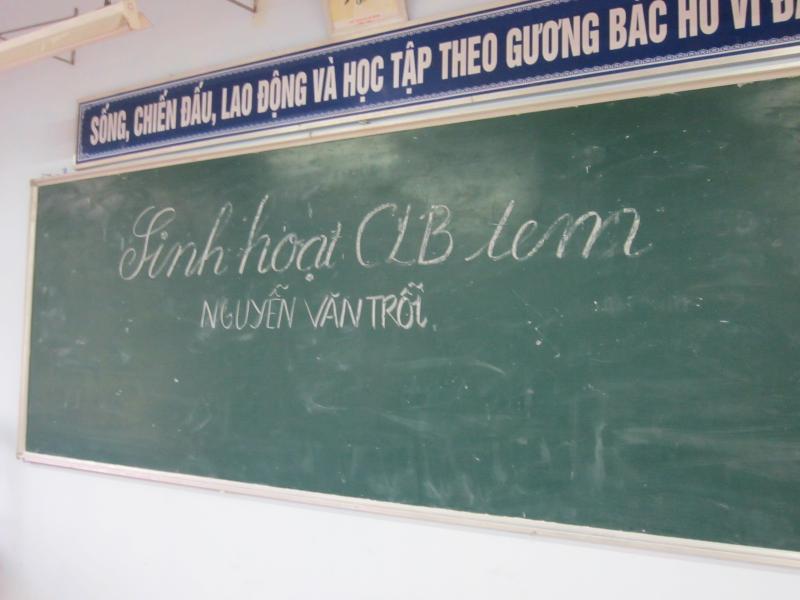 SỐNG, CHIẾN ĐẤU, LAO ĐỘNG VÀ HỌC TẬP THEO GƯƠNG BÁC HỒ VĨ ĐẠ
Sinh hoạt CLB tem
NGUYỄN VĂN TRỖI